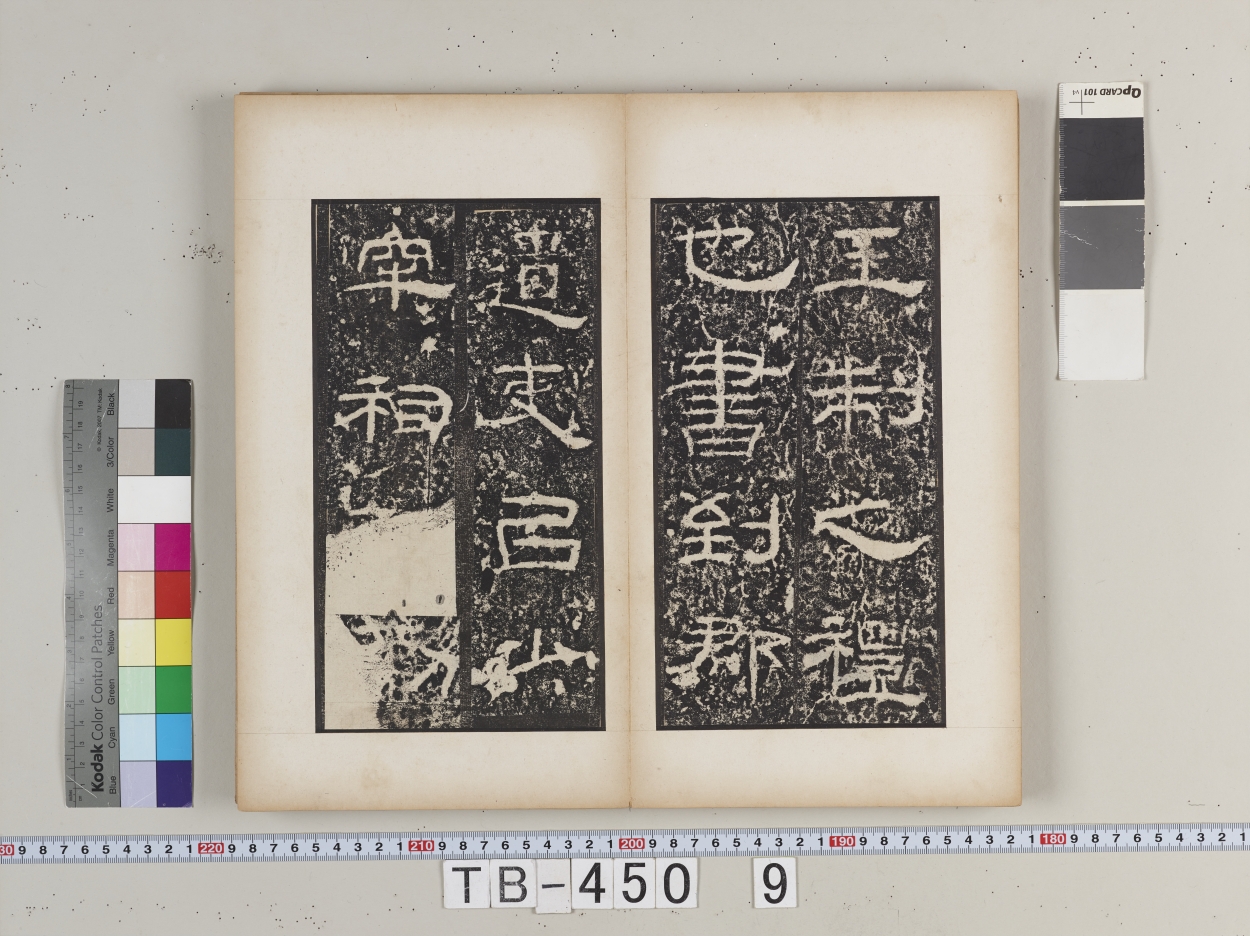 王制之禮
也書到郡
遣吏以少
牢祠
QPCARD 101 v4
Kodak Color Control Patches
Blue Cyan Green Yellow Red Magenta White 3/Color Black
30 9 8 7 6 5 4 3 2 1 220 9 8 7 6 5 4 3 2 1 210 9 8 7 6 5 4 3 2 1 200 9 8 7 6 5 4 3 2 1 190 9 8 7 6 5 4 3 2 1 180 9 8 7 6 5 4 3 2 1
TB-450 9